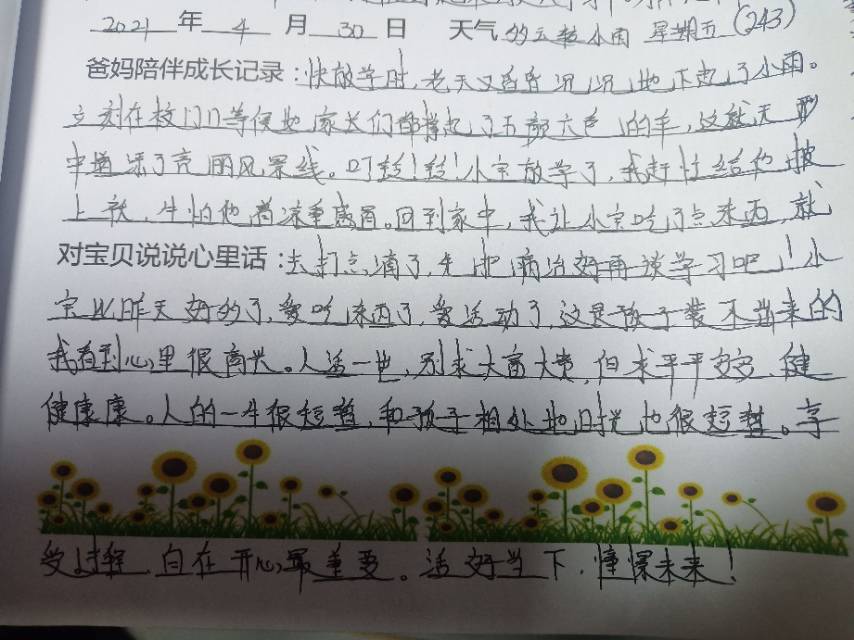 2021 年 4 月 30 日 天气 小雨 星期五 (243)
爸妈陪伴成长记录:快放学时,老天又昏昏沉沉地下起了小雨。
立刻在校门口等候地家长们都撑起了五颜六色的伞,这就无形
中增添了亮丽风景线。叮铃!铃!小宝放学了,我赶忙给他披
上衣,生怕他着凉重感冒。回到家中,我让小宝吃了点东西,就
对宝贝说说心里话:去打点滴了,先把病治好再谈学习吧!小
宝比昨天好多了,爱吃东西了,爱活动了,这是孩子装不出来的
我看到心里很高兴。人活一世,别求大富大贵,但求平平安安,健
健康康。人的一生很短暂,和孩子相处地时光也很短暂。享
受过程,自在开心最重要。活好当下,憧憬未来!